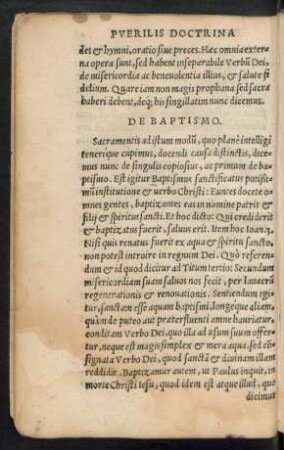 PVERILIS DOCTRINA
des & hymni, oratio siue preces. Hæc omnia exter-
na opera sunt, sed habent inseparabile Verbũ Dei,
de misericordia ac beneuolentia illius, & salute fi
delium. Quare iam non magis prophana sed sacra
haberi debent, deq́; his singillatim nunc dicemus.
DE BAPTISMO.
Sacramentis ad istum modũ, quo planè intelligi
tenerique cupimus, docendi causa distinctis, dice
mus nunc de singulis copiosius, ac primum de ba-
ptismo. Est igitur Baptismus sanctificatus potissi-
mũ institutione & uerbo Christi: Euntes docete o-
mnes gentes, baptizantes eas in nomine patris &
filij & spiritus sancti. Et hoc dicto: Qui crediderit
& baptizatus fuerit, saluus erit. Item hoc Ioan. 3.
Nisi quis renatus fuerit ex aqua & spiritu sancto,
non potest introire in regnum Dei. Quò referen-
dum & id quod dicitur ad Titum tertio: Secundum
misericordiam suam saluos nos fecit, per lauacrũ
regenerationis & renouationis. Sentiendum igi-
tur, sanctam esse aquam baptismi, longeque aliam,
quàm de puteo aut præterfluenti amne hauriatur,
conditam Verbo Dei, quo illa ad usum suum offer-
tur, neque est magis simplex & mera aqua, sed cõ-
signata Verbo Dei, quod sanctã & diuinam illam
reddidit. Baptizamur autem, ut Paulus inquit, in
morte Christi Iesu, quod idem est atque illud, quo
dicimur